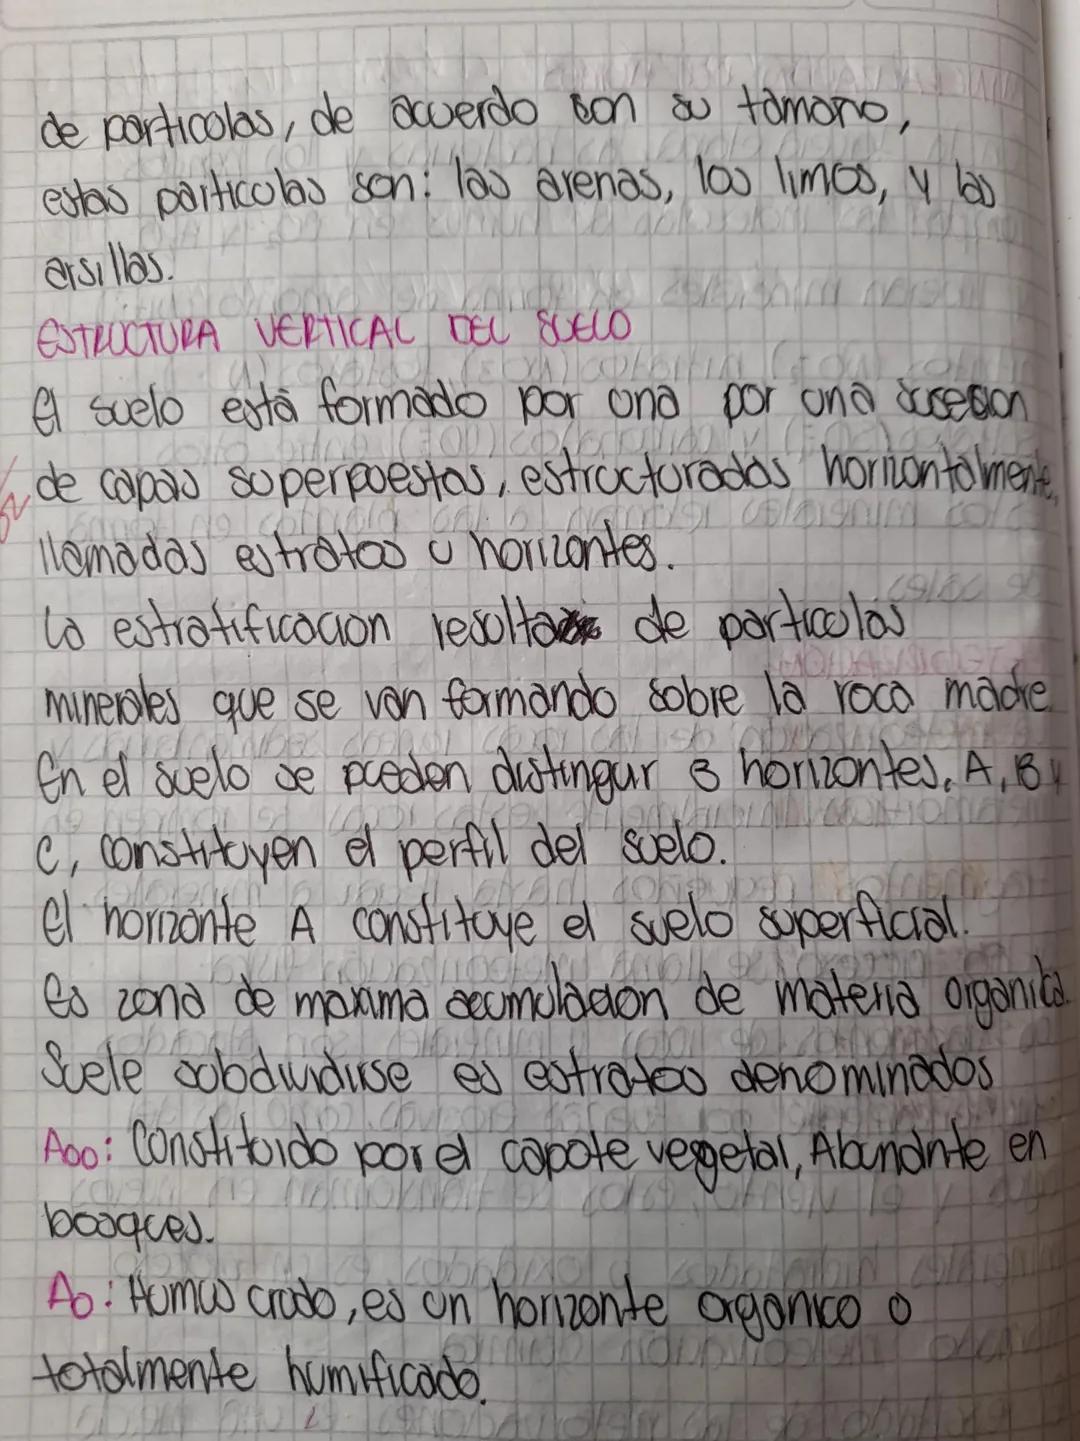 de particolas, de acuerdo son su tamaño,
estas particolas son: las arenas, los limos, y las
arsillas.
ESTRUCTURA VERTICAL DEL SUELO
El suelo está formado por una por una susesion
de capas superpoestas, estructuradas horizontalmente,
llamadas estratos u horizontes.
La estratificacion resulta de particolas
minerales que se van formando sobre la roca madre
En el suelo se pueden distingur 3 horizontes, A, B y
C, constituyen el perfil del suelo.
El horizonte A constituye el suelo superficial.
Es zona de maxima acumulacion de materia organica.
Suele sobdividirse es estratos denominados
Aoo: Constituido por el capote vegetal, Abundnte en
bosques.
Ao: Humus crudo, es un horizonte organico o
totalmente humificado.